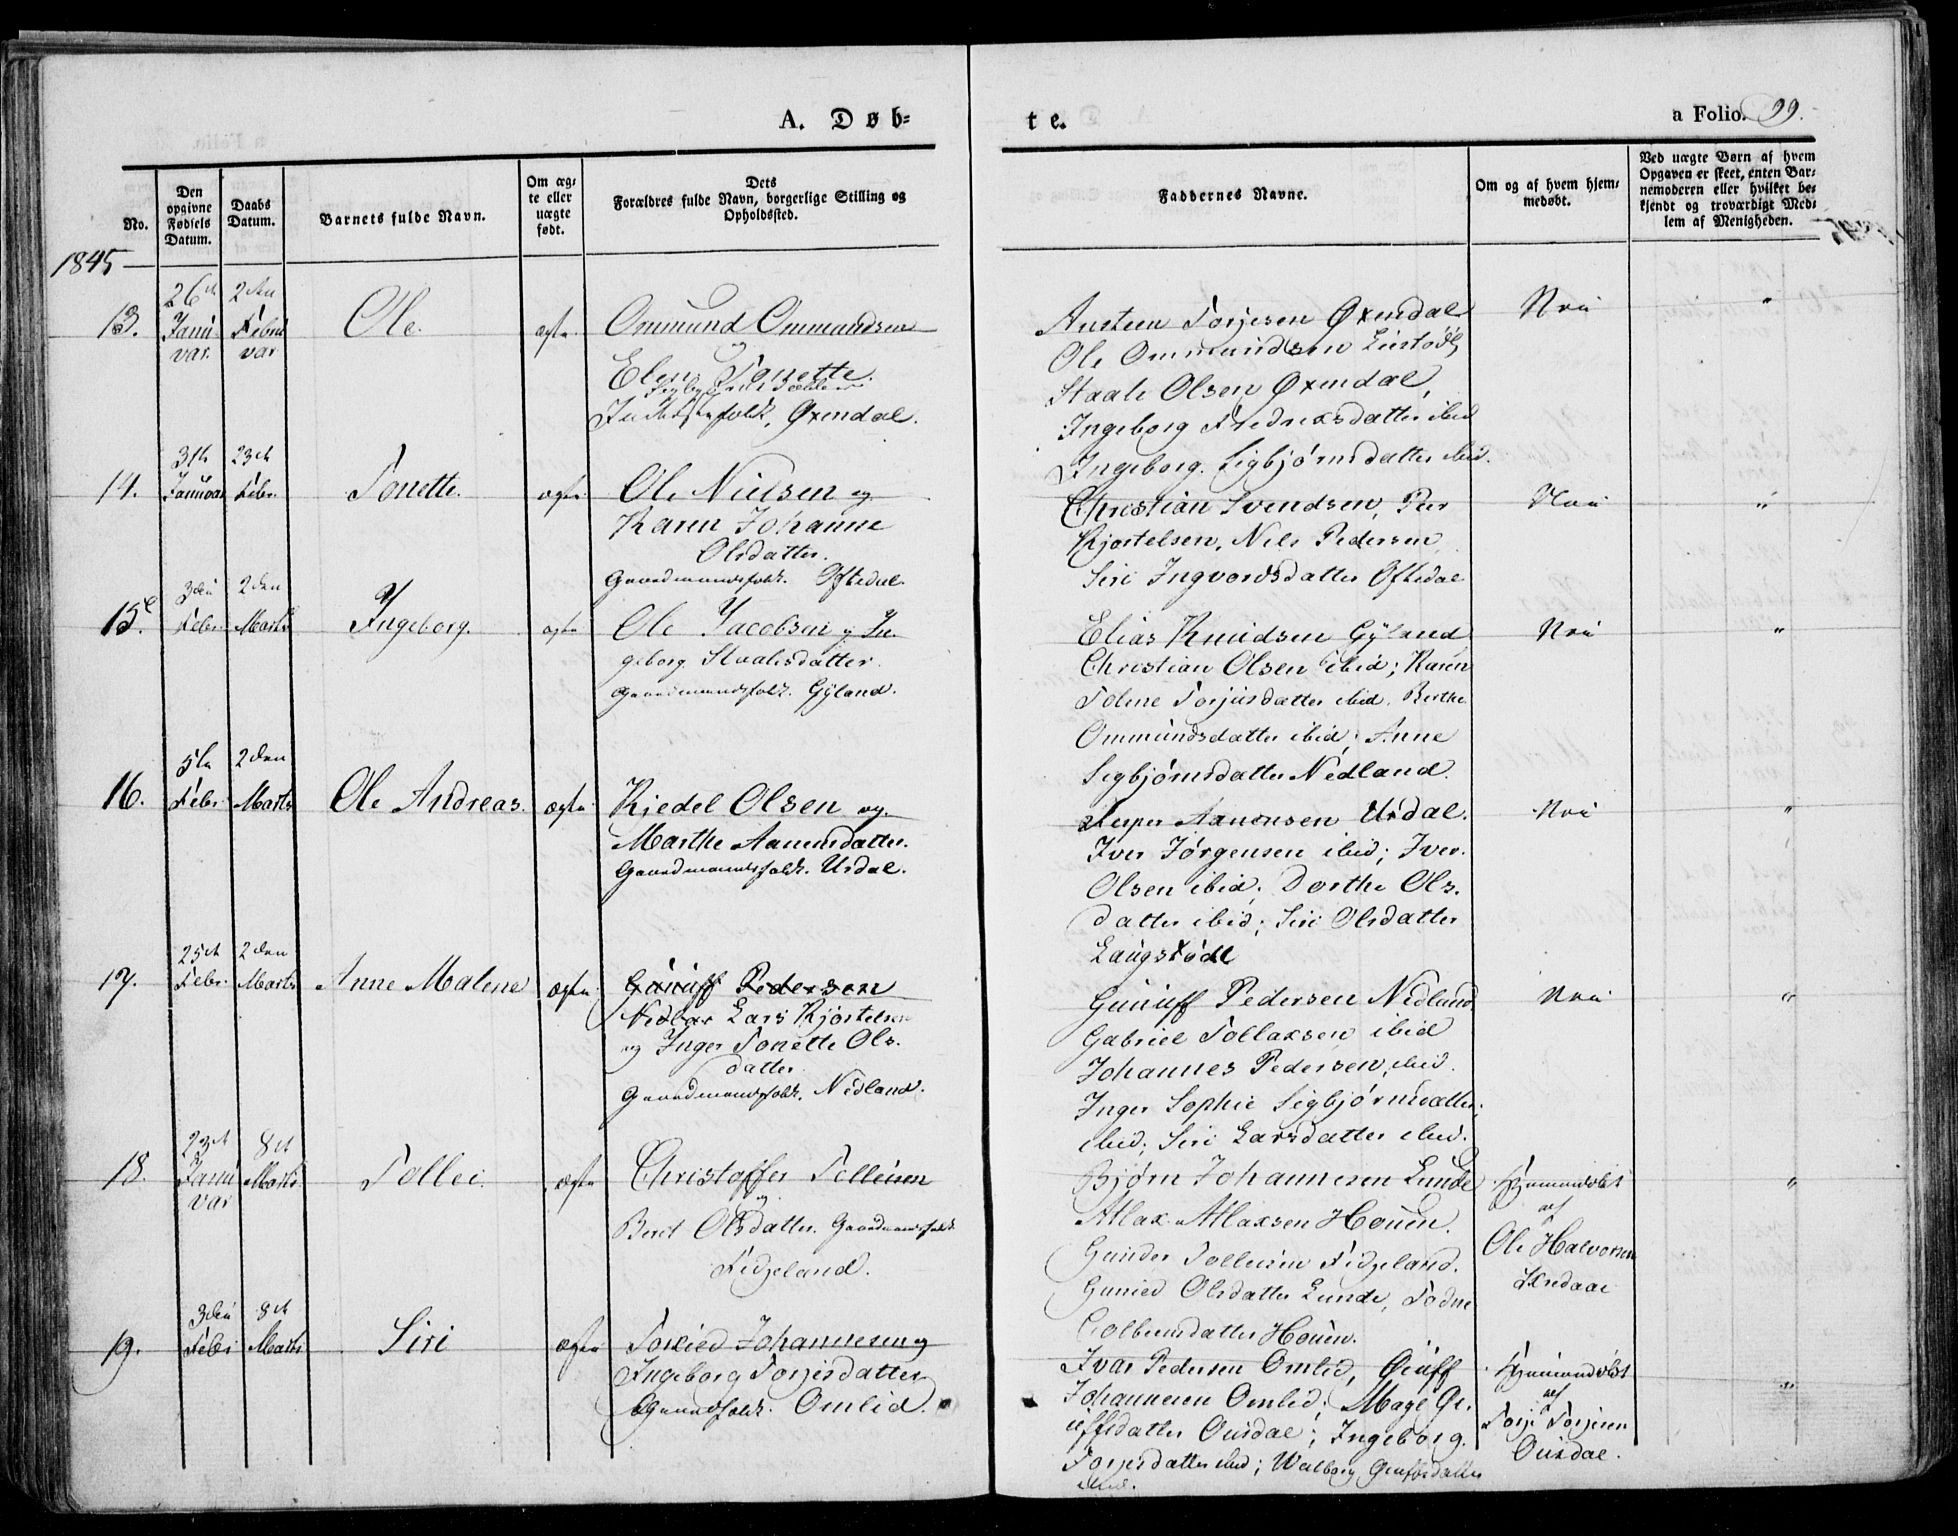 A. Døb-
te.
a Folio. 99.
No.
Den opgivne Fødsels Datum.
Daabs Datum.
Barnets fulde Navn.
Om ægte eller uægte født.
Dets Forældres fulde Navn, borgerlige Stilling og Opholdsted.
Faddernes Navne.
Om og af hvem hjemmedøbt.
Ved uægte Børn af hvem Opgaven er skeet, enten Barnemoderen eller hvilket bekjendt og troværdigt Medlem af Menigheden.
1845
13.
26de
Janu
var.
2den
Febru
var
Ole.
ægte
Ommund Ommundsen
Elen Tonette
Inderstfolk, Øxendal.
Austeen Torjesen Øxendal
Ole Ommundsen
Staale Olsen Øxendal,
Ingeborg Fredriksdatter ibid
Ingeborg Sigbjørnsdatter ibid.
Nei
"
14.
31te
Januar
23de
Febr.
Tonette.
ægte
Ole Nielsen og
Karen Johanne
Olsdatter.
Gaardmandsfolk. Oftedal.
Christian Svendsen, Peer
Kjøstelsen, Nils Pedersen
Siri Ingvordsdatter Oftedal
Nei
"
15.
3die
Febr.
2den
Marts
Ingeborg.
ægte
Ole Jacobsen og In-
geborg Staalesdatter.
Gaardmandsfolk. Gÿland.
Elias Knudsen Gÿland
Christian Olsen ibid; Karen
Tolene Torjusdatter ibid. Berthe
Ommundsdatter ibid; Anne
Sigbjørnsdatter Nedland.
Nei
"
16.
5te
Febr.
2den
Marts
Ole Andreas.
ægte
Kiedel Olsen og
Marthe Aanensdatter.
Gaardmandsfolk. Urdal.
Jesper Aanonsen Urdal.
Iver Jørgensen ibid; Iver
Olsen ibid; Dorthe Ols-
datter ibid; Siri Olsdatter
Laugstødl
Nei
"
17.
25de
Febr.
2den
Marts
Anne Malene
ægte
Gunuff Pedersen
Nedla Lars Kjøstelsen
og Inger Tonette Ols-
datter
Gaardmandsfolk. Nedland.
Gunuff Pedersen Nedland
Gabriel Tollaksen ibid
Johannes Pedersen ibid.
Inger Sophie Sigbjørnsdatter
ibid; Siri Larsdatter ibid.
Nei
"
18.
23de
Janu
var
8de
Marts
Tollei.
ægte
Christoffer Tolleisen
og
Berit Olsdatter. Gaardmandsfolk
Fidjeland.
Bjørn Johannesen Lunde
Atlax Atlaxsen Houen.
Gunder Tolleisen Fidjeland.
Gunild Olsdatter Lunde, Todne
Houen.
Hjemmedøbt
af
Ole Halvorsen
"
19.
3die
Febr
8de
Marts
Siri
ægte
Torkied Johannesen og
Ingeborg Torjesdatter
Gaardfolk. Omlid.
Ivar Pedersen Omlid, Giuff
Johannesen Omlid; Mage Gi-
uffsdatter Ousdal; Ingeborg
Torjesdatter ibid; Walborg Giuffsdatter
ibid.
Hjemmedøbt
af
Torje Torjesen
Ousdal.
"